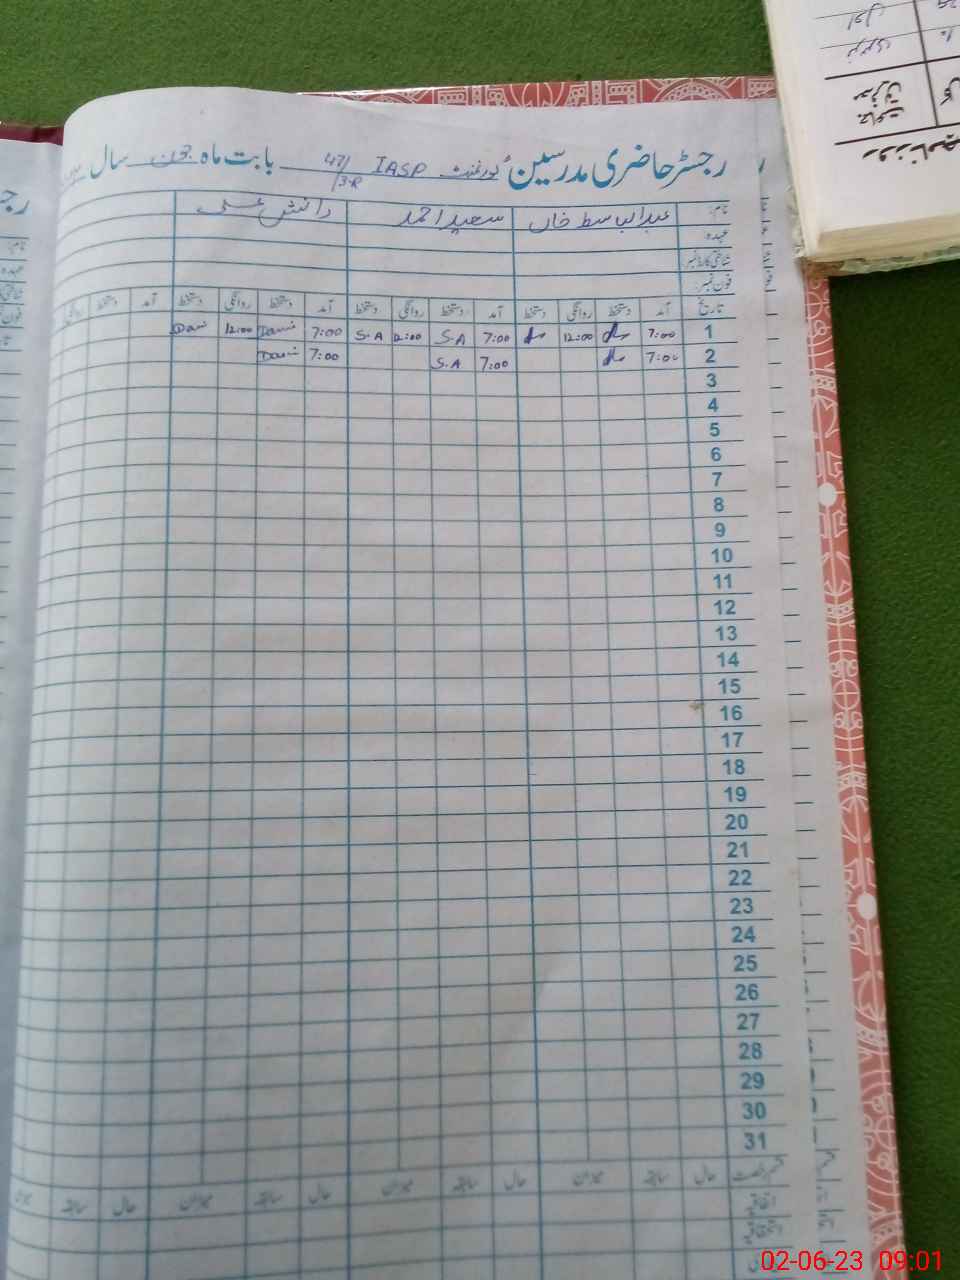 رجسٹر حاضری مدرسین گورنمنٹ IASP 47/3-R بابت ماہ جون سال
نام: عبدالباسط خاں سعید احمد دانش علی
عہدہ
شناختی کارڈ نمبر
فون نمبر:
تاریخ آمد دستخط روانگی دستخط آمد دستخط روانگی دستخط آمد دستخط روانگی دستخط آمد دستخط روانگی
1 7:00 12:00 7:00 S.A 12:00 S.A 7:00 Dani 12:00 Dani
2 7:00 7:00 S.A 7:00 Dani
3
4
5
6
7
8
9
10
11
12
13
14
15
16
17
18
19
20
21
22
23
24
25
26
27
28
29
30
31
قسم رخصت حال سابقہ میزان حال سابقہ میزان حال سابقہ میزان حال سابقہ میزان
اتفاقیہ
استحقاقیہ
02-06-23 09:01